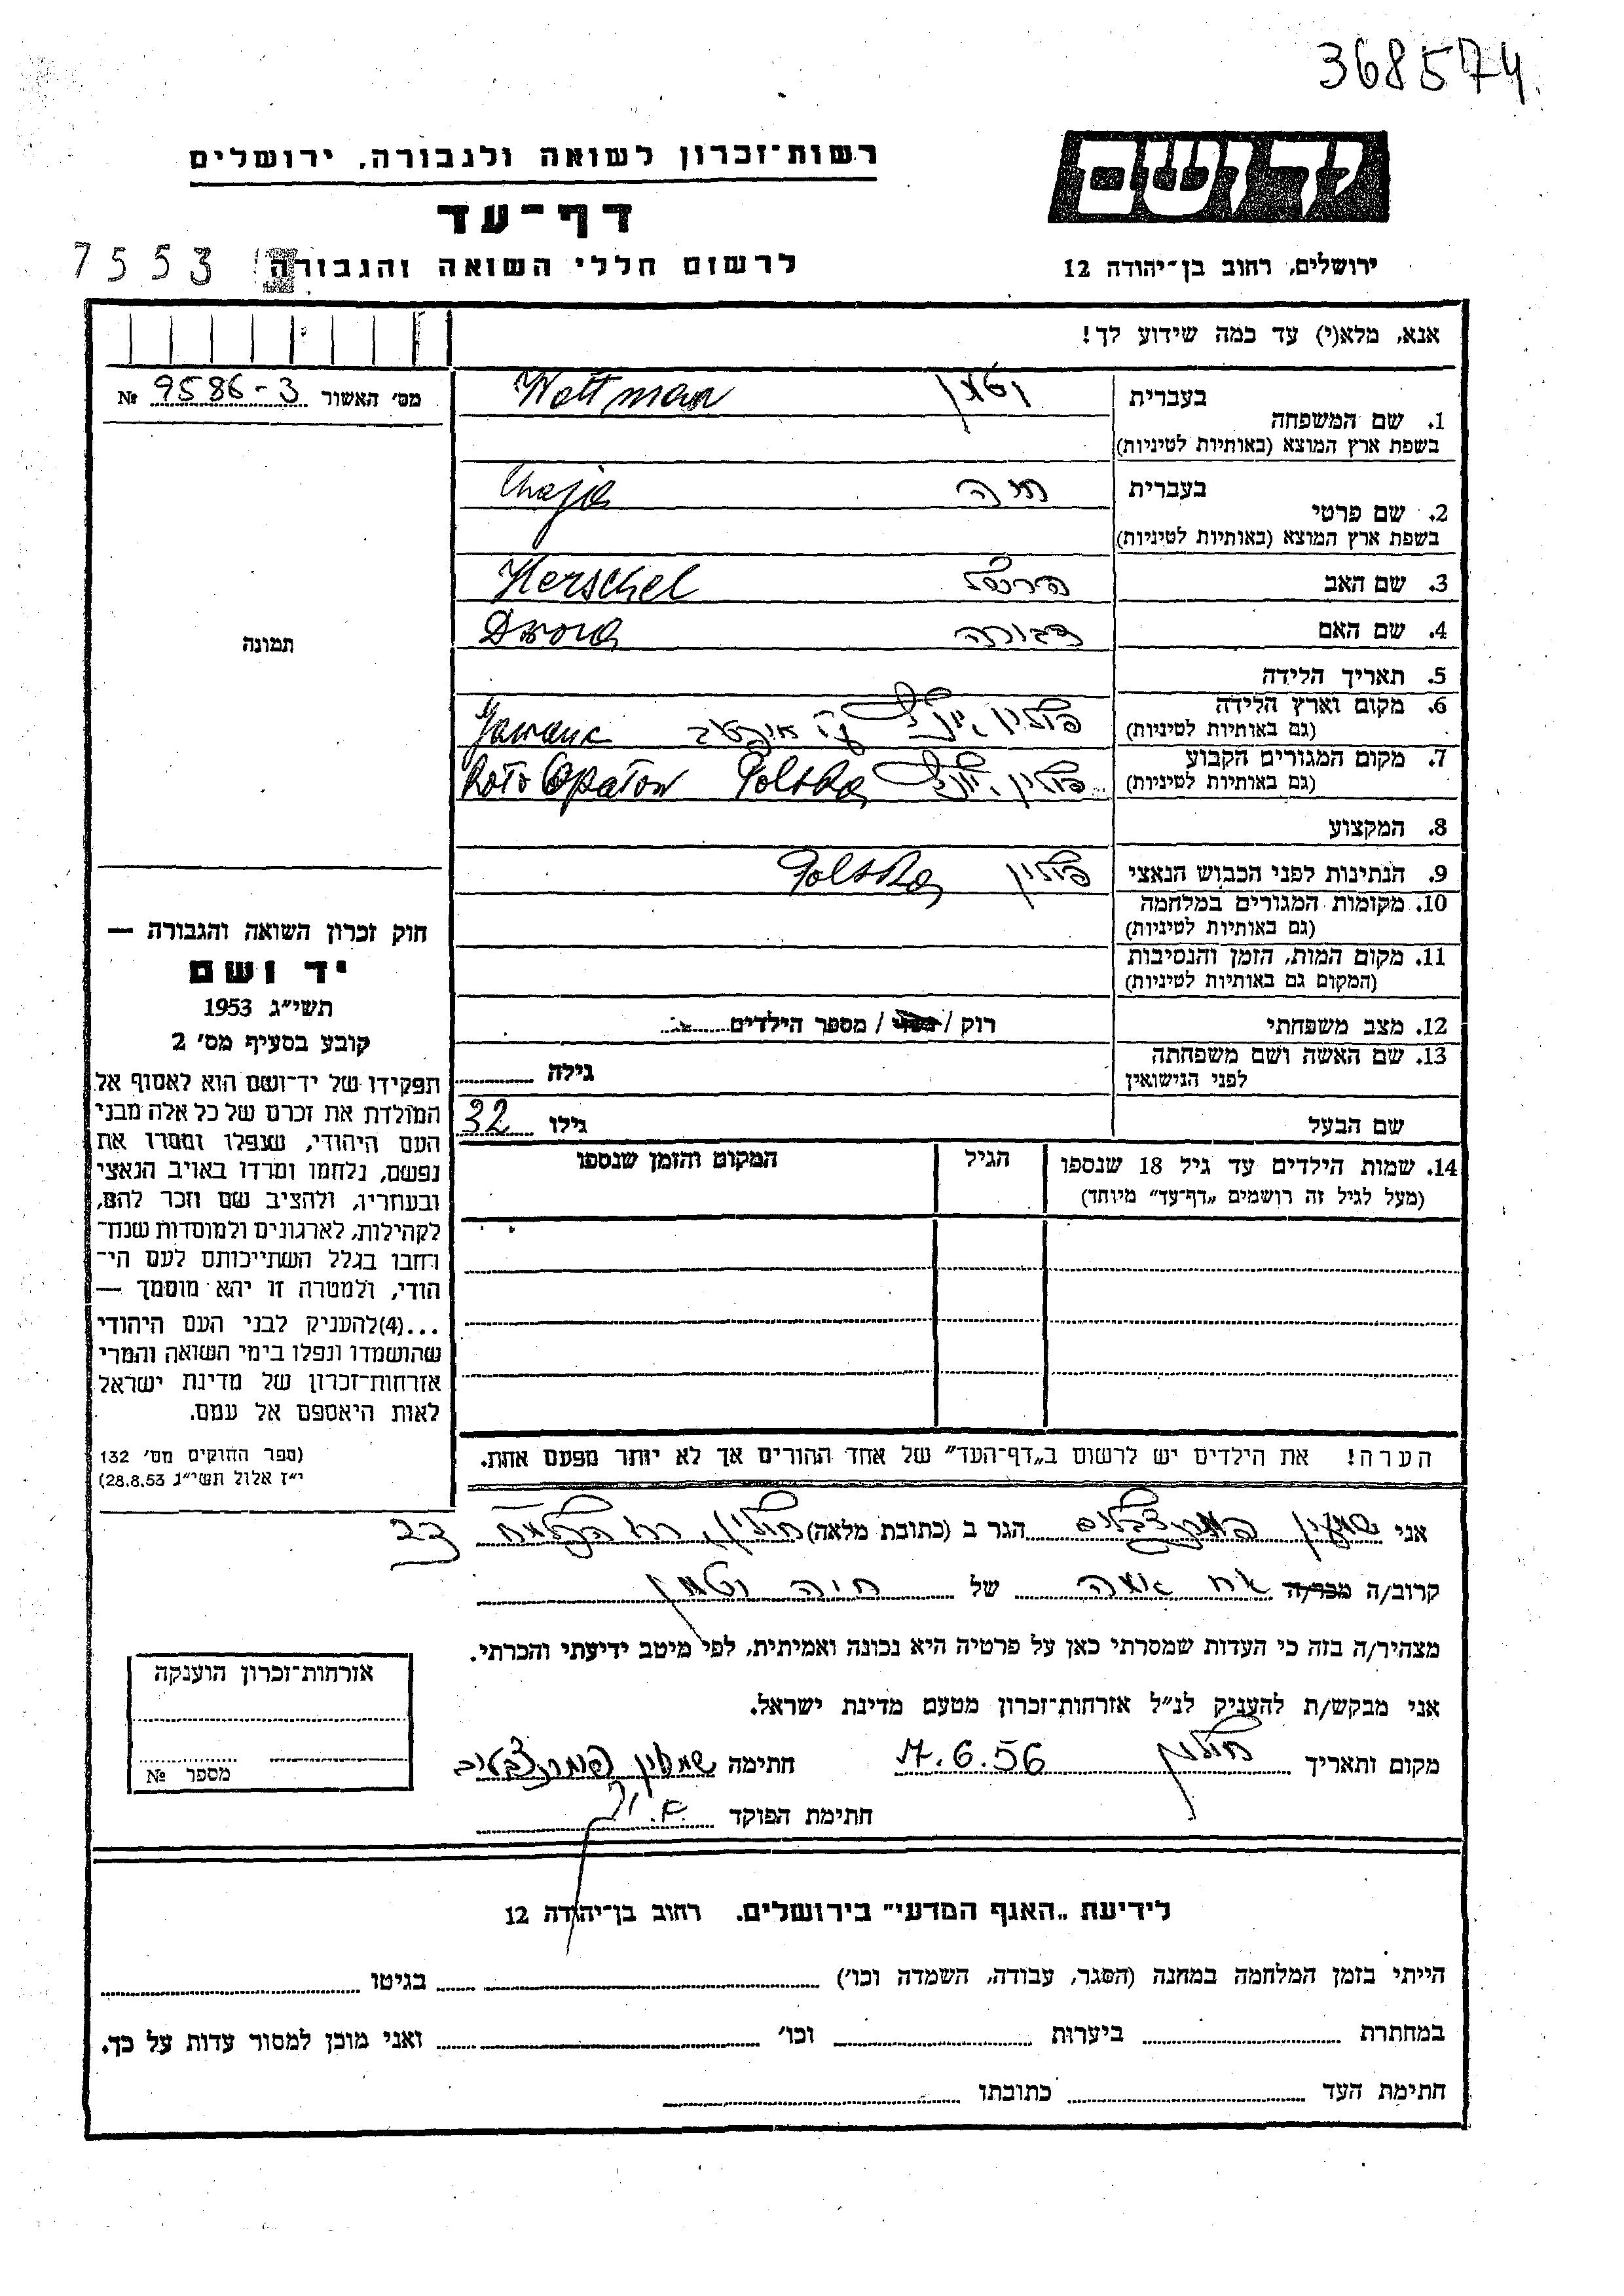 368574
יד ושם
רשות־זכרון לשואה ולגבורה, ירושלים
דף־עד
ירושלים, רחוב בן־יהודה 12
לרשום חללי השואה והגבורה
7553
אנא, מלא(י) עד כמה שידוע לך!
מס׳ האשור № 9586-3
תמונה
בעברית
1. שם המשפחה
בשפת ארץ המוצא (באותיות לטיניות)
וטמן Wettman
בעברית
2. שם פרטי
בשפת ארץ המוצא (באותיות לטיניות)
חיה Chaja
3. שם האב הרשל Herschel
4. שם האם דבורה Dwora
5. תאריך הלידה
6. מקום וארץ הלידה
(גם באותיות לטיניות)
פולין
7. מקום המגורים הקבוע
(גם באותיות לטיניות)
פולין Polska koto Opatow
8. המקצוע
9. הנתינות לפני הכבוש הנאצי פולין Polska
10. מקומות המגורים במלחמה
(גם באותיות לטיניות)
11. מקום המות, הזמן והנסיבות
(המקום גם באותיות לטיניות)
12. מצב משפחתי רוק / נשוי / מספר הילדים
13. שם האשה ושם משפחתה
לפני הנישואין
גילה
שם הבעל גילו 32
14. שמות הילדים עד גיל 18 שנספו
(מעל לגיל זה רושמים „דף־עד״ מיוחד)
הגיל
המקום והזמן שנספו
הערה! את הילדים יש לרשום ב„דף־העד״ של אחד ההורים אך לא יותר מפעם אחת.
חוק זכרון השואה והגבורה —
יד ושם
תשי״ג 1953
קובע בסעיף מס׳ 2
תפקידו של יד־ושם הוא לאסוף אל
המולדת את זכרם של כל אלה מבני
העם היהודי, שנפלו ומסרו את
נפשם, נלחמו ומרדו באויב הנאצי
ובעוזריו, ולהציב שם וזכר להם,
לקהילות, לארגונים ולמוסדות שנח־
רחבו בגלל השתייכותם לעם הי־
הודי, ולמטרה זו יהא מוסמך —
...(4) להעניק לבני העם היהודי
שהושמדו ונפלו בימי השואה והמרי
אזרחות־זכרון של מדינת ישראל
לאות היאספם אל עמם.
(ספר החוקים מס׳ 132
י״ז אלול תשי״ג 28.8.53)
אני שמעון הגר ב (כתובת מלאה) חולון, רח 22
קרוב/ה מכר/ה של חיה וטמן
מצהיר/ה בזה כי העדות שמסרתי כאן על פרטיה היא נכונה ואמיתית, לפי מיטב ידיעתי והכרתי.
אני מבקש/ת להעניק לנ״ל אזרחות־זכרון מטעם מדינת ישראל.
מקום ותאריך חולון 7.6.56 חתימה שמעון
חתימת הפוקד
אזרחות־זכרון הוענקה
מספר №
לידיעת „האגף המדעי״ בירושלים. רחוב בן־יהודה 12
הייתי בזמן המלחמה במחנה (הסגר, עבודה, השמדה וכו׳) בגיטו
במחתרת ביערות וכו׳ ואני מוכן למסור עדות על כך.
חתימת העד כתובתו